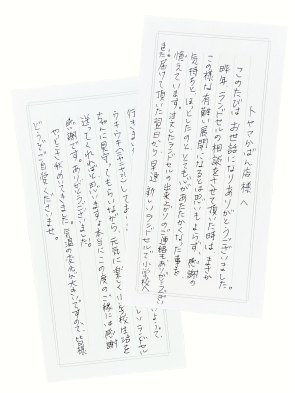 トヤマかばん店様へ
このたびは、お世話になりありがとうございました。
昨年、ランドセルの相談をさせて頂いた時は、まさか
この様な有難い展開になるとは思いもよらず、感謝の
気持ちと、ほっとしたのと、とても心があたたかくなった事を
憶えています。注文したランドセルの出来上がりのご連絡もありがたく
また届けて頂いた翌日から、早速新しいランドセルで小学校へ
行きました。
ウキウキ
ちゃんに見守ってもらいながら、元気に楽しく小学校生活を
送ってくれればと思います。本当にこの度のご様には感謝
感謝です。ありがとうございました。
やっとさむくなってきました。気温の変化が大きいですので、皆様
どうぞご自愛くださいませ。